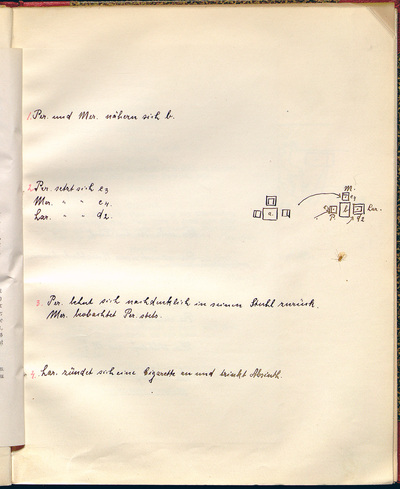 1. Per. und Mer. nähern sich b.
2. Per. setzt sich e3
Mer. " " e4.
Lar. " " d2.
M.
e4
a.
b
Lar.
P.
d2
3. Per. lehnt sich nachdenklich in seinen Stuhl zurück.
Mer. beobachtet Per. stets.
4. Lar. zündet sich eine Cigarette an und trinkt Absinth.